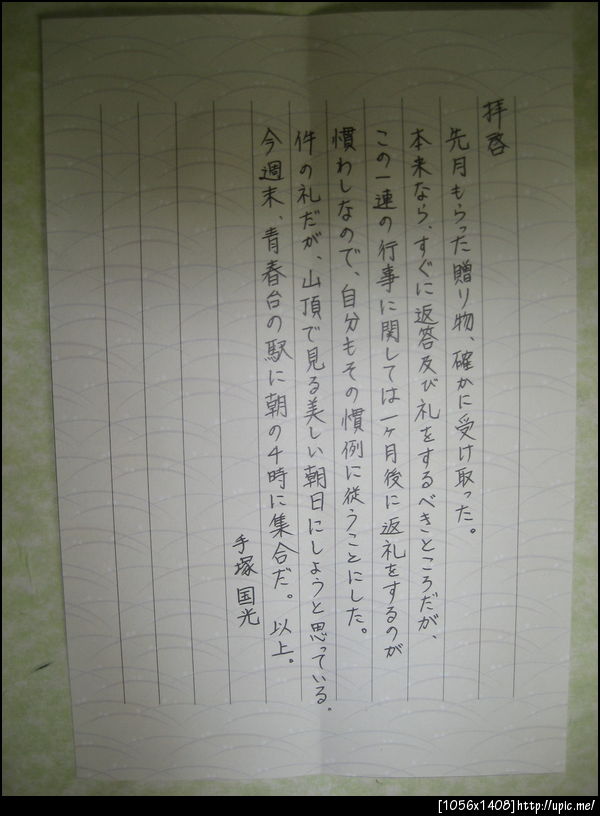 拝啓
先月もらった贈り物、確かに受け取った。
本来なら、すぐに返答及び礼をするべきところだが、
この一連の行事に関しては一ヶ月後に返礼をするのが
慣わしなので、自分もその慣例に従うことにした。
件の礼だが、山頂で見る美しい朝日にしようと思っている。
今週末、青春台の駅に朝の4時に集合だ。以上。
手塚国光
[1056x1408]http://upic.me/